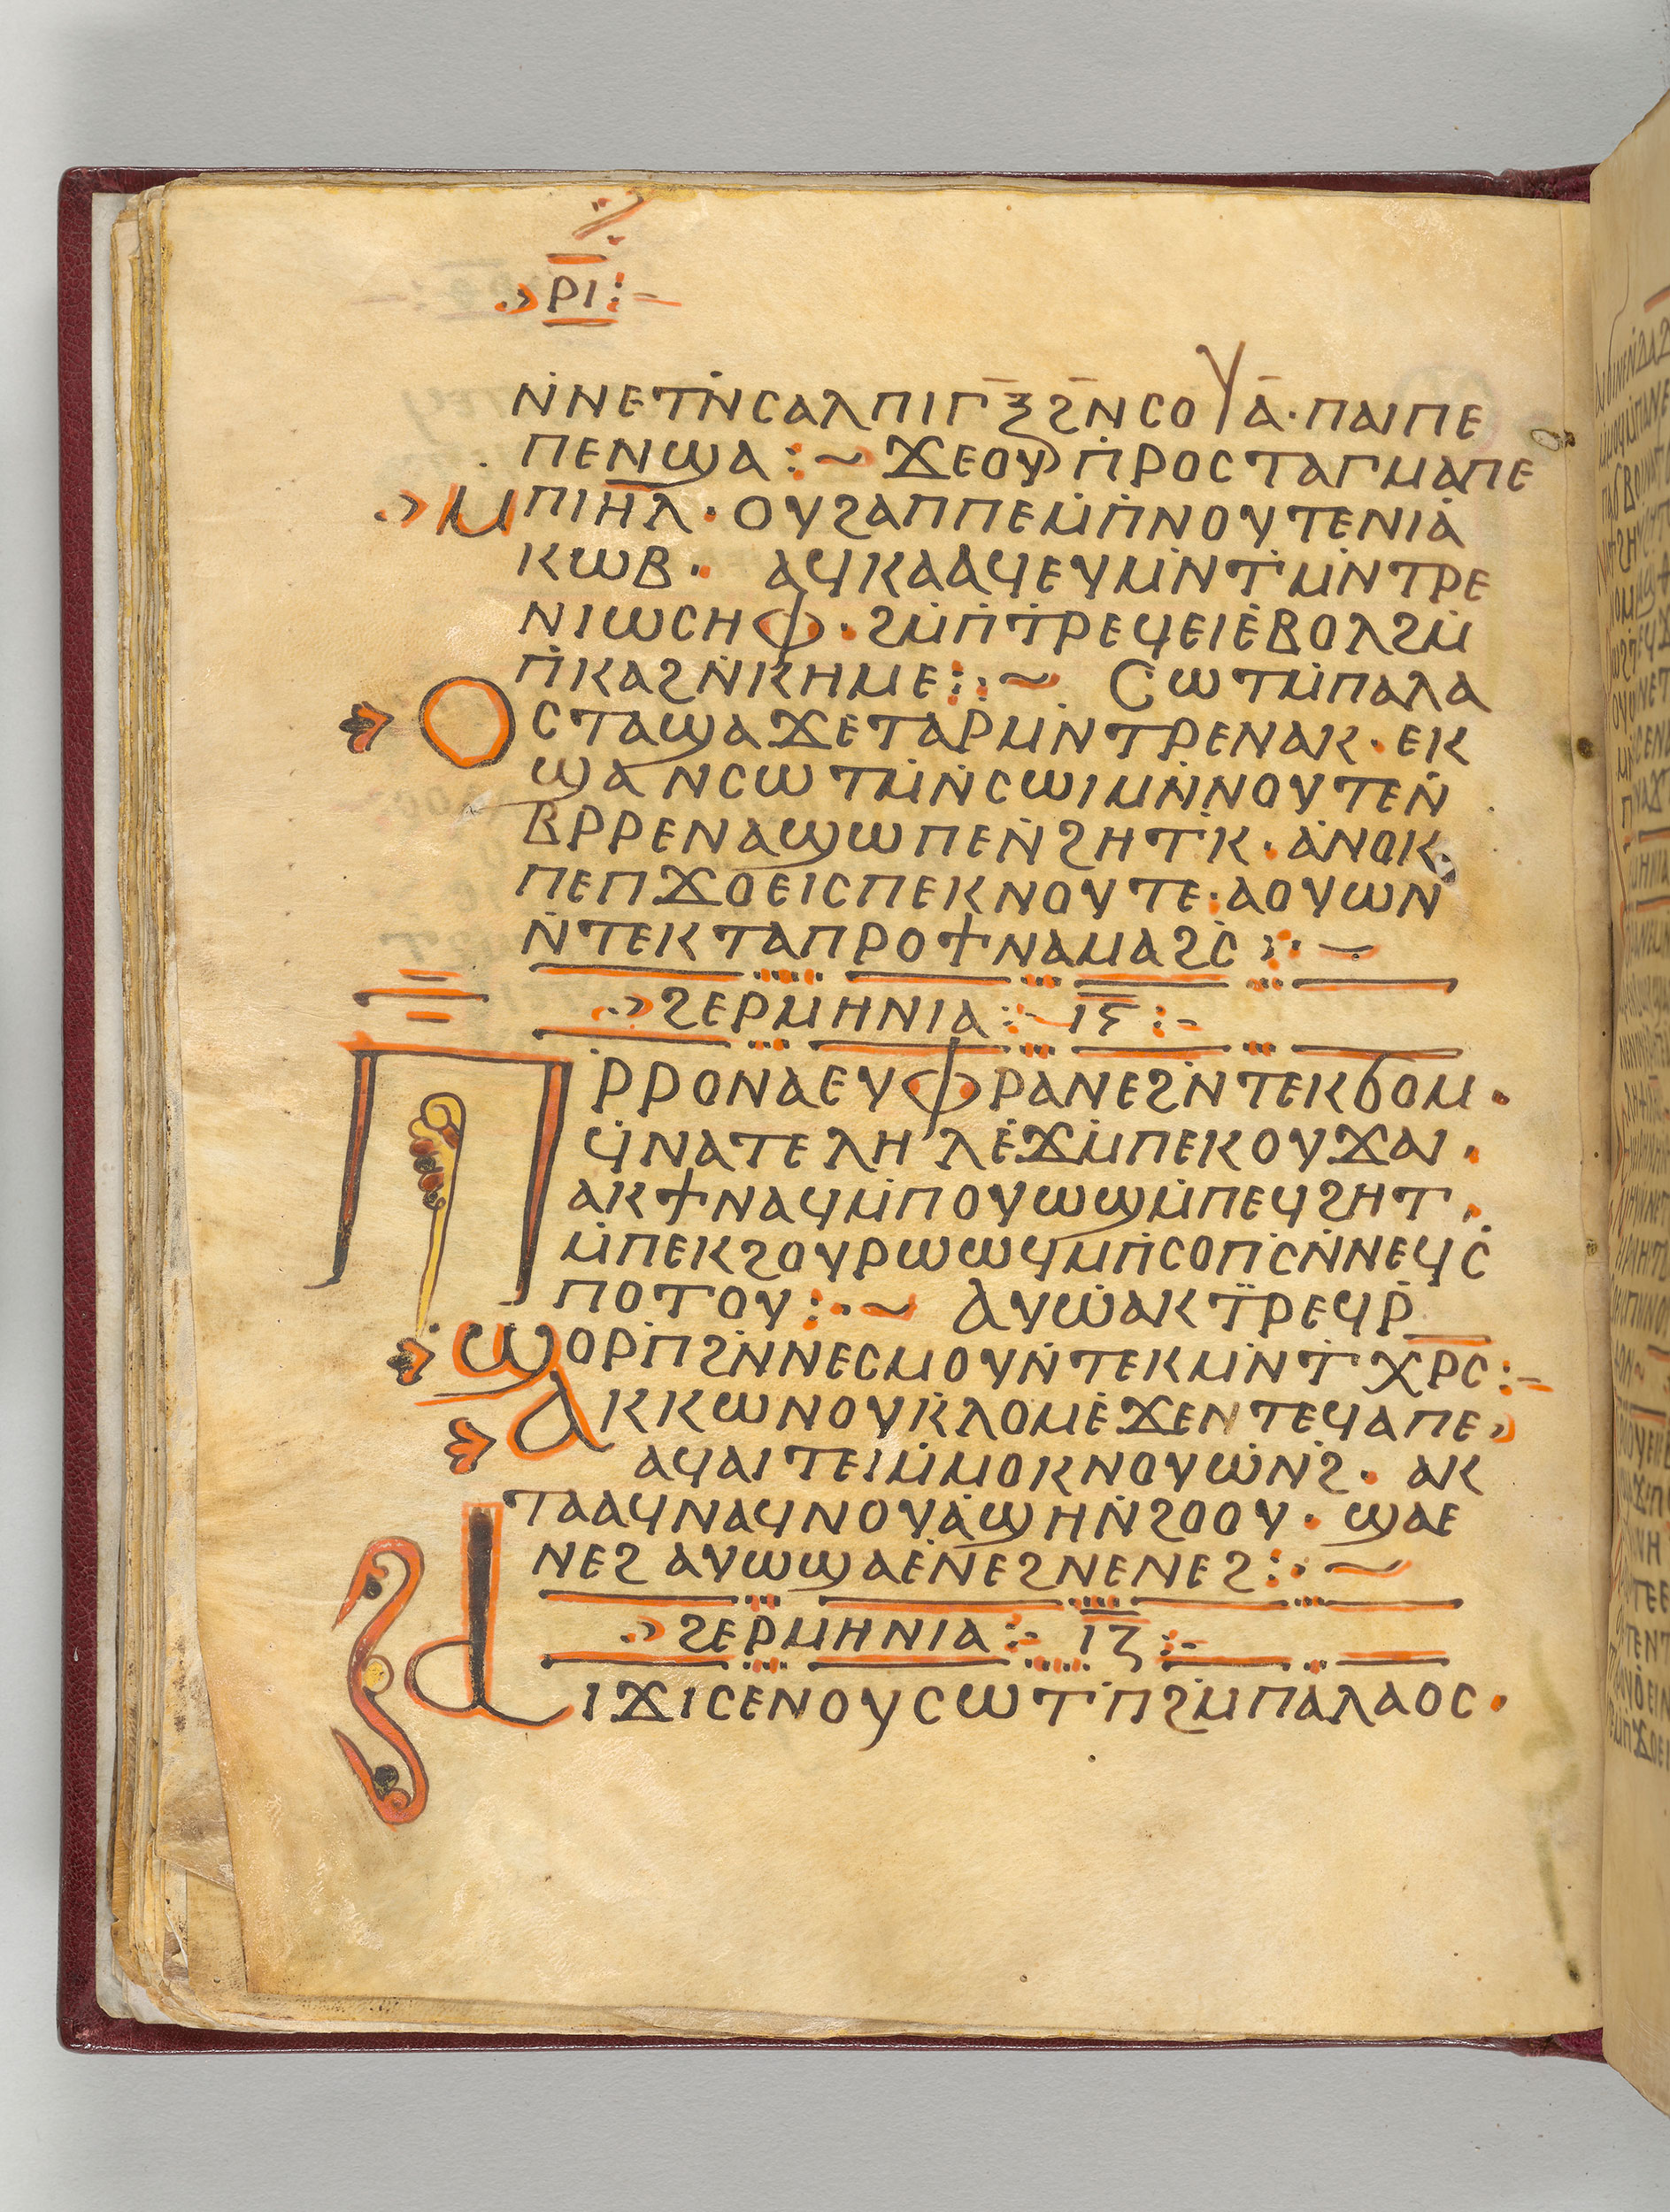 ⲣⲓ
ⲛ̇ⲛⲉⲧⲛ̇ⲥⲁⲗⲡⲓⲅⲝ̅ϩⲛ̅ⲥⲟⲩⲁ̅·ⲡⲁⲓⲡⲉ
ⲡⲉⲛϣⲁ:~ ϫⲉⲟⲩⲡ̇ⲣⲟⲥⲧⲁⲅⲙⲁⲡⲉ
ⲙⲡⲓⲏ̅ⲗ̅·ⲟⲩϩⲁⲡⲡⲉⲙ̇ⲡ̇ⲛⲟⲩⲧⲉⲛⲓⲁ̇
ⲕⲱⲃ· ⲁϥⲕⲁⲁϥⲉⲩⲙⲛ̇ⲧ̇ⲙⲛ̇ⲧⲣⲉ
ⲛⲓⲱⲥⲏⲫ·ϩⲙ̇ⲡ̇ⲧ̇ⲣⲉϥⲉⲓⲉ̇ⲃⲟⲗϩⲙ̇
ⲡ̇ⲕⲁϩⲛ̇ⲕⲏⲙⲉ:·~ Ⲥⲱⲧⲙ̇ⲡⲁⲗⲁ
ⲟⲥⲧⲁϣⲁϫⲉⲧⲁⲣ̇ⲙⲛ̇ⲧⲣⲉⲛⲁⲕ·ⲉⲕ
ϣⲁⲛⲥⲱⲧⲙ̇ⲛ̇ⲥⲱⲓⲙⲛ̇ⲛⲟⲩⲧⲉⲛ̇
ⲃⲣⲣⲉⲛⲁϣⲱⲡⲉⲛ̇ϩⲏⲧ̇ⲕ·ⲁ̇ⲛⲟⲕ
ⲡⲉⲡϫⲟⲉⲓⲥⲡⲉⲕⲛⲟⲩⲧⲉ·ⲁⲟⲩⲱⲛ
ⲛ̇ⲧⲉⲕⲧⲁⲡⲣⲟϯⲛⲁⲙⲁϩⲥ̇:·–
ϩⲉⲣⲙⲏⲛⲓⲁ:– ⲓ̅ⲋ̅:–
Ⲡⲣ̇ⲣⲟⲛⲁⲉⲩⲫⲣⲁⲛⲉϩⲛ̇ⲧⲉⲕϭⲟⲙ·
ϥ̇ⲛⲁⲧⲉⲗⲏⲗⲉ̇ϫⲙ̇ⲡⲉⲕⲟⲩϫⲁⲓ·
ⲁⲕϯⲛⲁϥⲙ̇ⲡⲟⲩⲱϣⲙ̇ⲡⲉϥϩⲏⲧ·
ⲙ̇ⲡⲉⲕϩⲟⲩⲣⲱⲱϥⲙⲡ̇ⲥⲟⲡⲥ̇ⲛ̇ⲛⲉϥⲥ̇
ⲡⲟⲧⲟⲩ:·~ Ⲁⲩⲱ̇ⲁⲕⲧ̈ⲣⲉϥⲣ̇
ϣⲟⲣⲡ̇ϩⲛ̇ⲛⲉⲥⲙⲟⲩⲛ̇ⲧⲉⲕⲙⲛ̇ⲧ̇ⲭ̅ⲣ̅ⲥ̅:–
ⲁⲕⲕⲱⲛⲟⲩⲕ̇ⲗⲟⲙⲉ̇ϫⲉⲛⲧⲉϥⲁⲡⲉ
ⲁϥⲁⲓⲧⲉⲓⲙ̇ⲙⲟⲕⲛⲟⲩⲱ̇ⲛ̇ϩ̇· ⲁⲕ
ⲧⲁⲁϥⲛⲁϥⲛⲟⲩⲁ̇ϣⲏⲛ̇ϩⲟⲟⲩ·ϣⲁⲉ
ⲛⲉϩⲁⲩⲱϣⲁⲉ̇ⲛⲉϩⲛⲉⲛⲉϩ:·~
ϩⲉⲣⲙⲏⲛⲓⲁ:– ⲓ̅ⲍ̅:–
Ⲁⲓϫⲓⲥⲉⲛⲟⲩⲥⲱⲧⲡ̇ϩⲙ̇ⲡⲁⲗⲁⲟⲥ·